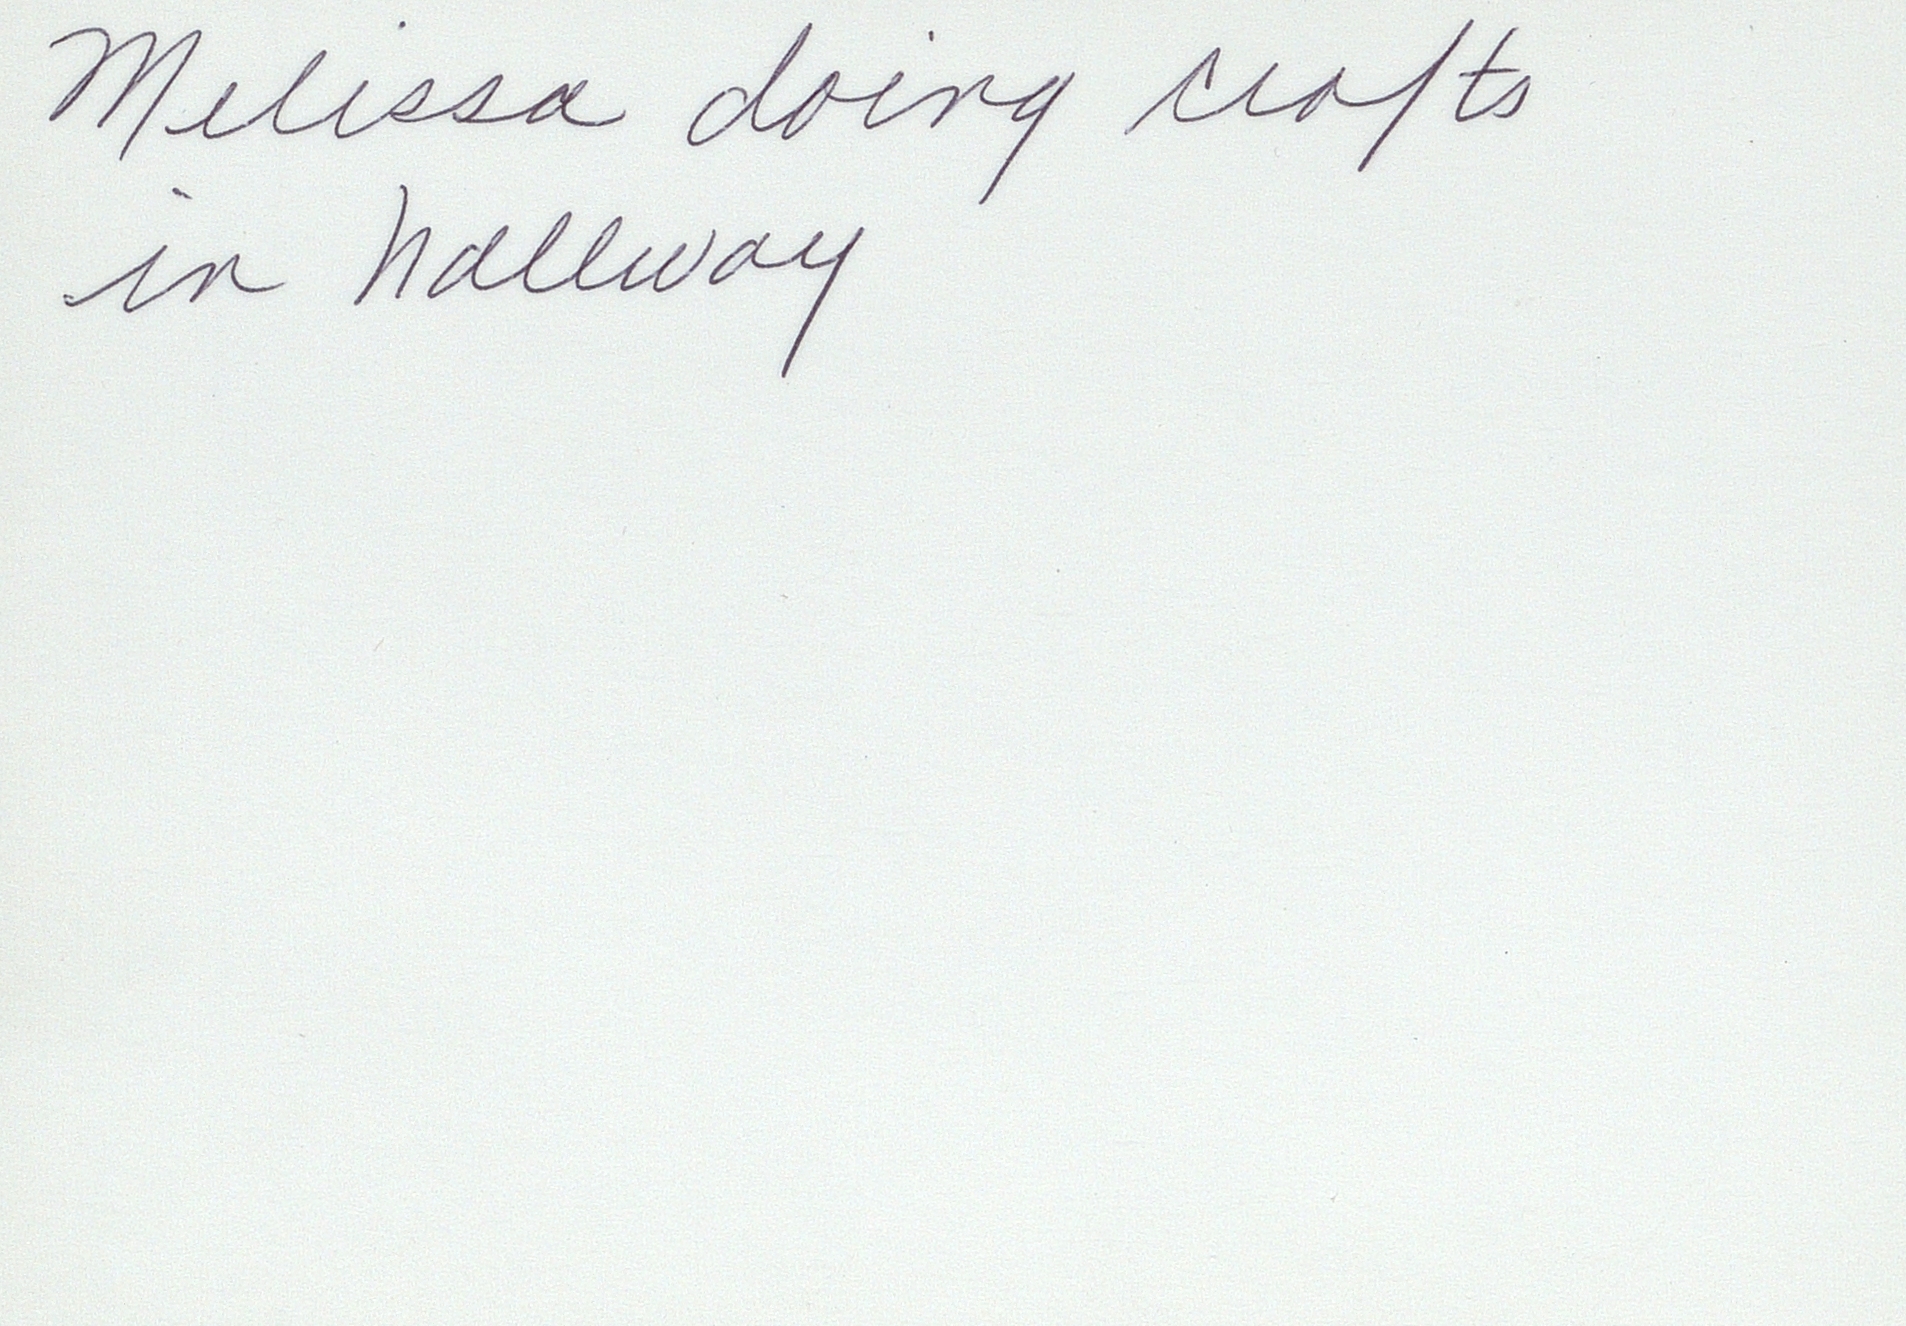 Melissa doing crafts
in hallway